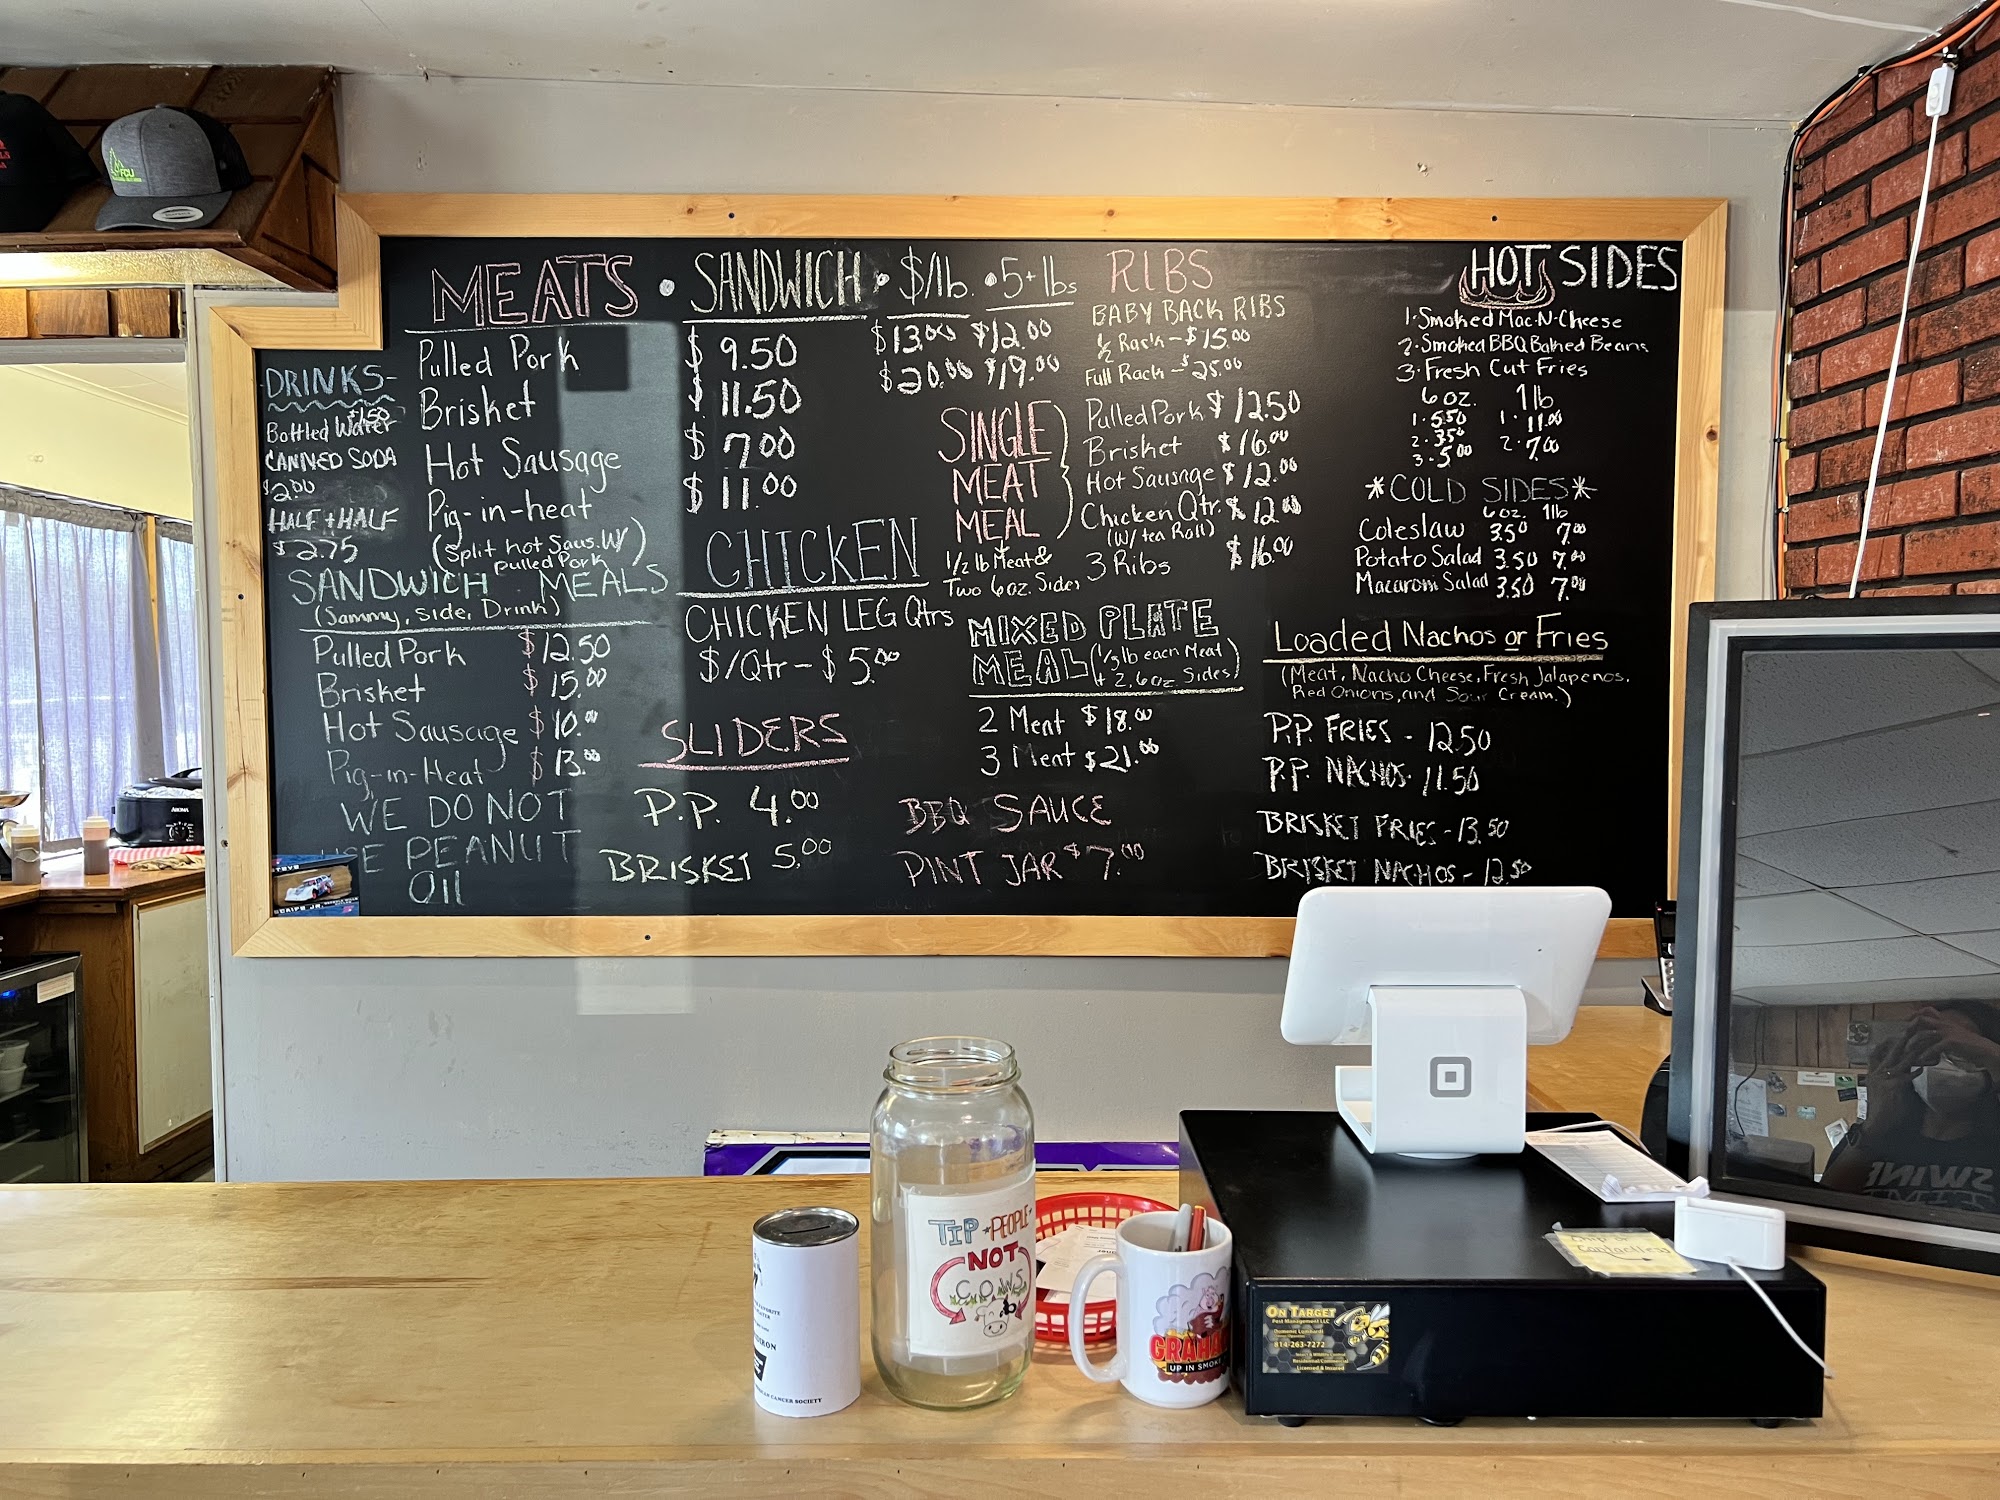 MEATS • SANDWICH • $/lb. • 5+lbs
Pulled Pork $ 9.50 $13.00 $12.00
Brisket $ 11.50 $20.00 $19.00
Hot Sausage $ 7.00
Pig-in-heat $ 11.00
(Split hot Saus. W/
pulled Pork)
-DRINKS-
$1.50
Bottled Water
CANNED SODA
$2.00
HALF + HALF
$2.75
SANDWICH MEALS
(Sammy, side, Drink)
Pulled Pork $12.50
Brisket $15.00
Hot Sausage $10.00
Pig-in-Heat $13.00
WE DO NOT
USE PEANUT
Oil
CHICKEN
CHICKEN LEG Qtrs
$/Qtr - $5.00
SLIDERS
P.P. 4.00
BRISKET 5.00
RIBS
BABY BACK RIBS
1/2 Rack - $15.00
Full Rack - $25.00
SINGLE
MEAT
MEAL
1/2 lb Meat &
Two 6oz. Sides
Pulled Pork $12.50
Brisket $16.00
Hot Sausage $12.00
Chicken Qtr. $12.00
(W/ tea Roll)
3 Ribs $16.00
MIXED PLATE
MEAL (1/3 lb each Meat
+ 2, 6oz Sides)
2 Meat $18.00
3 Meat $21.00
BBQ SAUCE
PINT JAR $7.00
HOT SIDES
1. Smoked Mac-N-Cheese
2. Smoked BBQ Baked Beans
3. Fresh Cut Fries
6oz. 1lb
1. 5.50 1. 11.00
2. 3.50 2. 7.00
3. 5.00
*COLD SIDES*
6oz. 1lb
Coleslaw 3.50 7.00
Potato Salad 3.50 7.00
Macaroni Salad 3.50 7.00
Loaded Nachos or Fries
(Meat, Nacho Cheese, Fresh Jalapenos,
Red Onions, and Sour Cream.)
P.P. FRIES - 12.50
P.P. NACHOS - 11.50
BRISKET FRIES - 13.50
BRISKET NACHOS - 12.50
TIP PEOPLE
NOT
COWS
UP IN SMOKE
CANCER SOCIETY
ON TARGET
Pest Management LLC
814-263-7272
Residential/Commercial
Licensed & Insured
Contactless